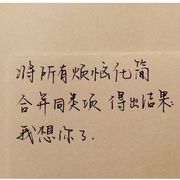 将所有烦恼化简
合并同类项 得出结果:
我想你了.